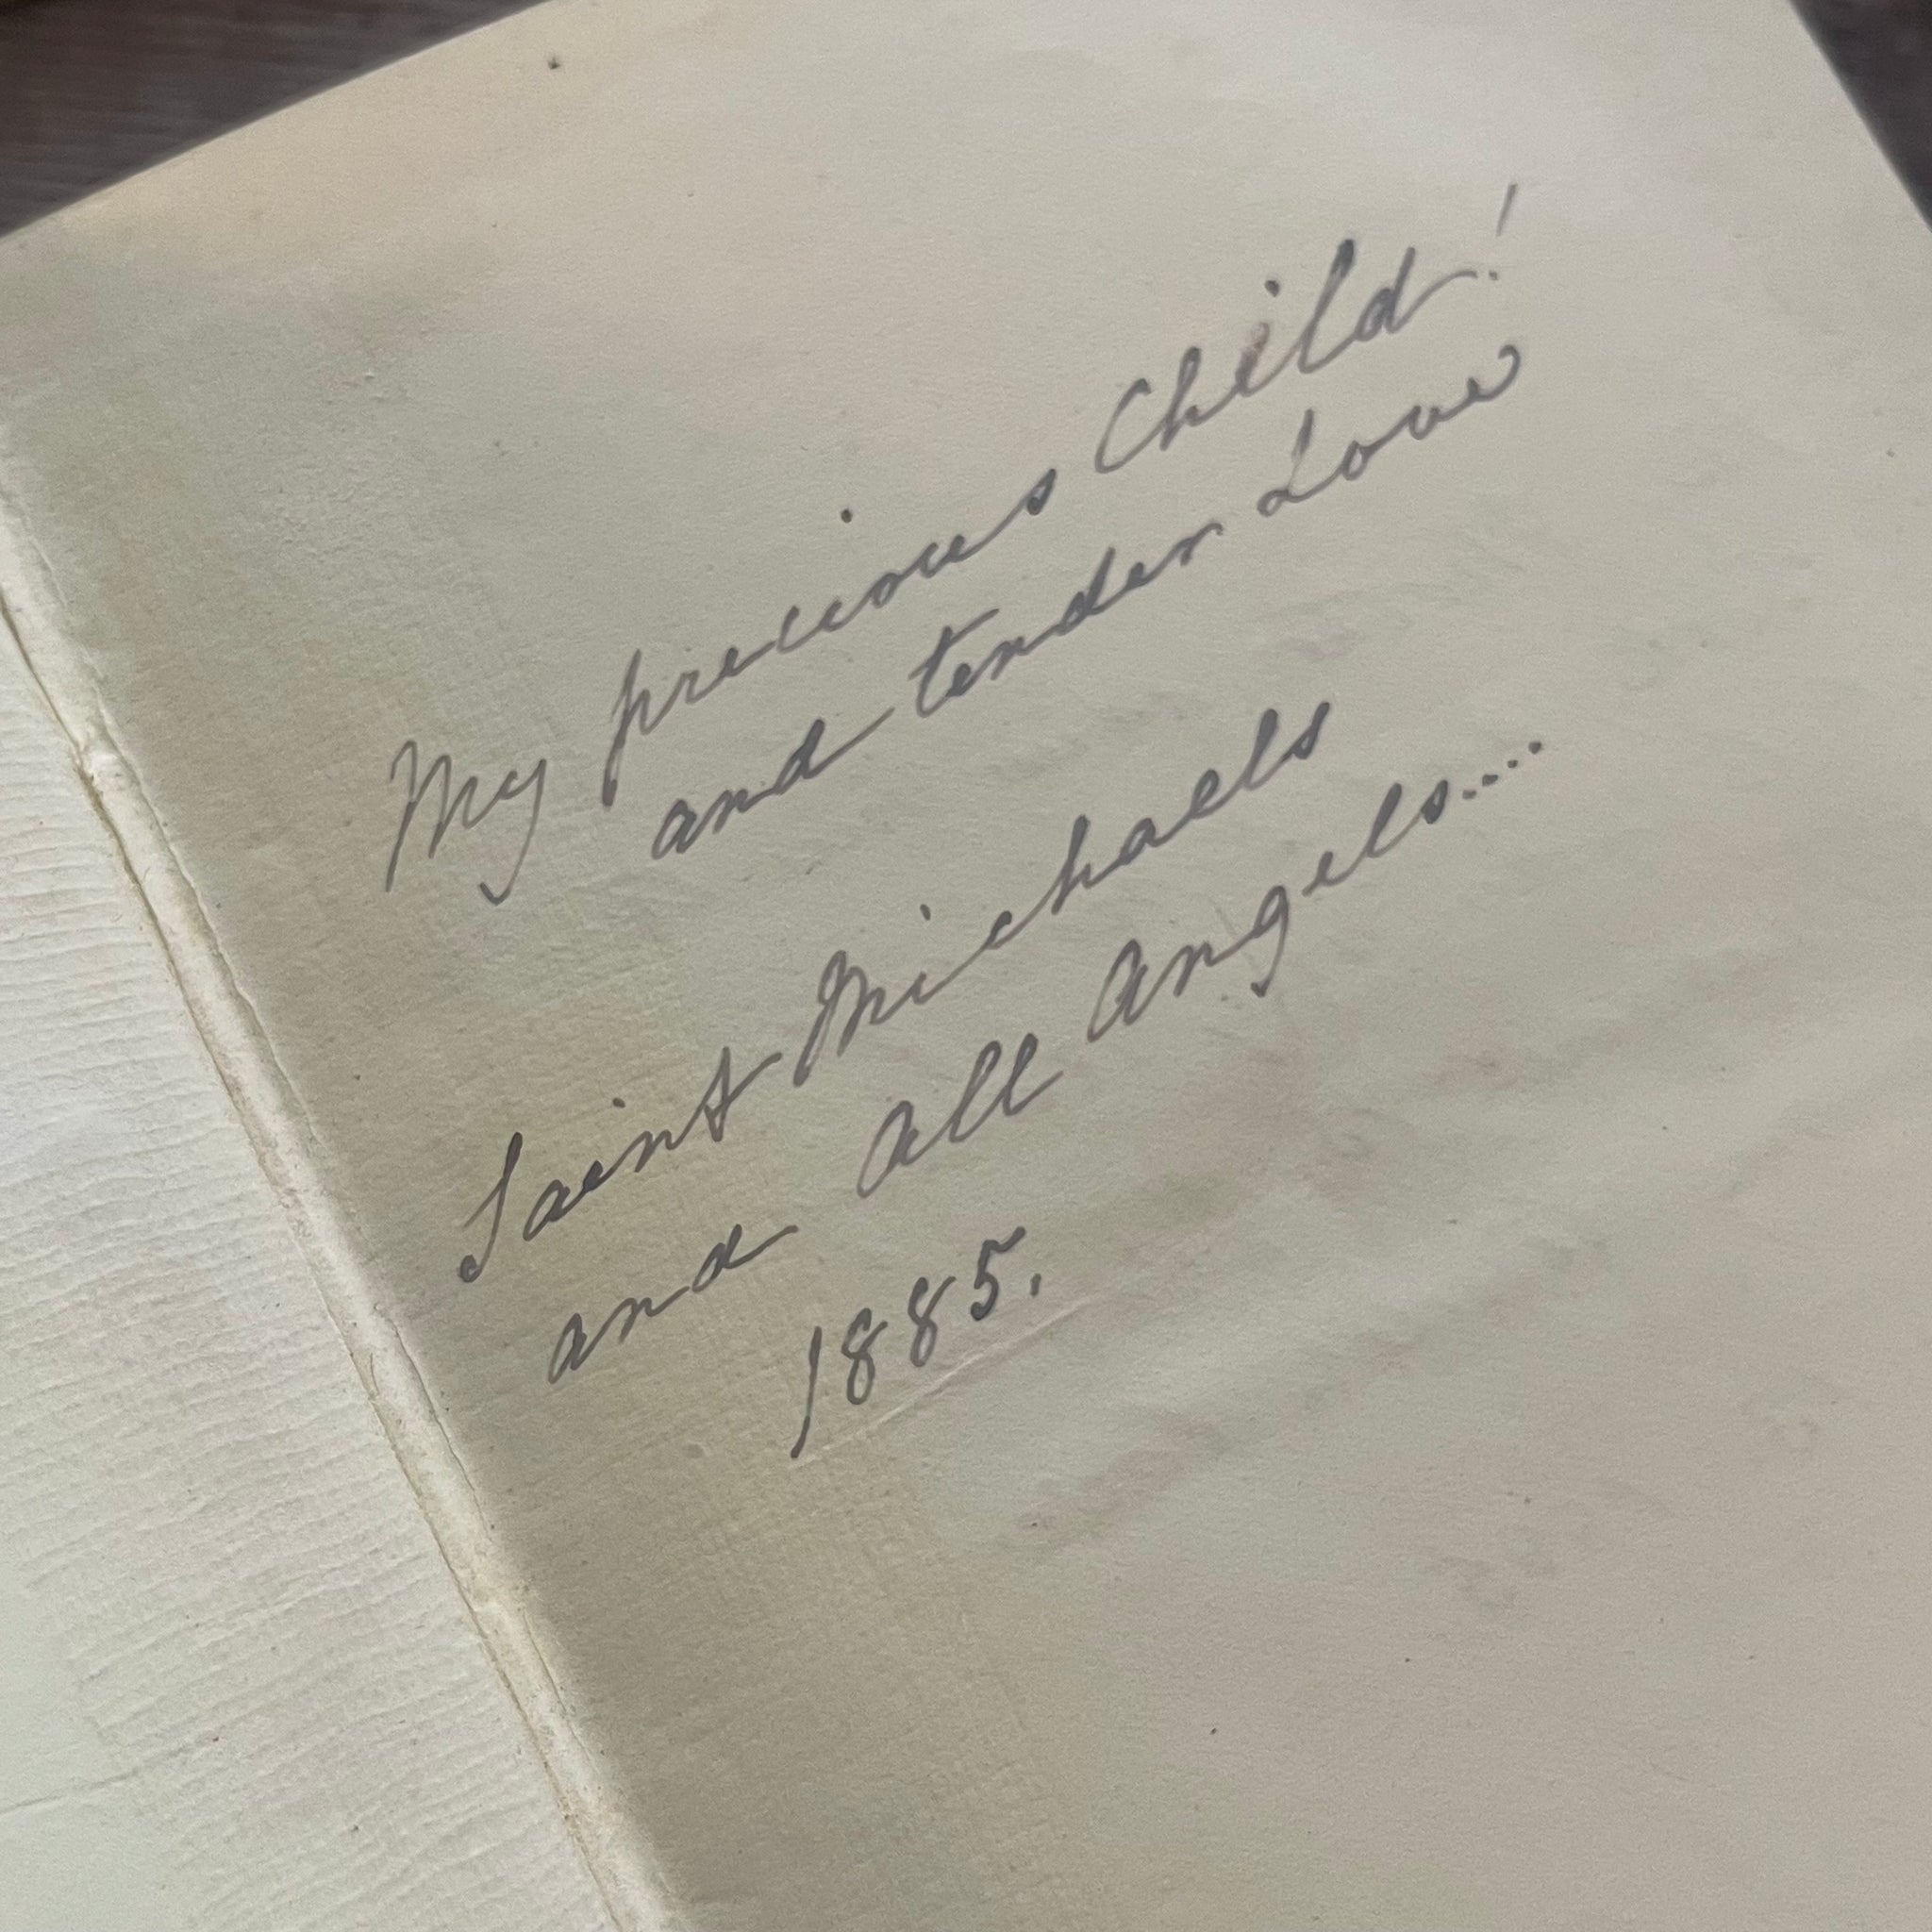 My precious Child!
and tender Love
Saint Michaels
and All Angels....
1885.